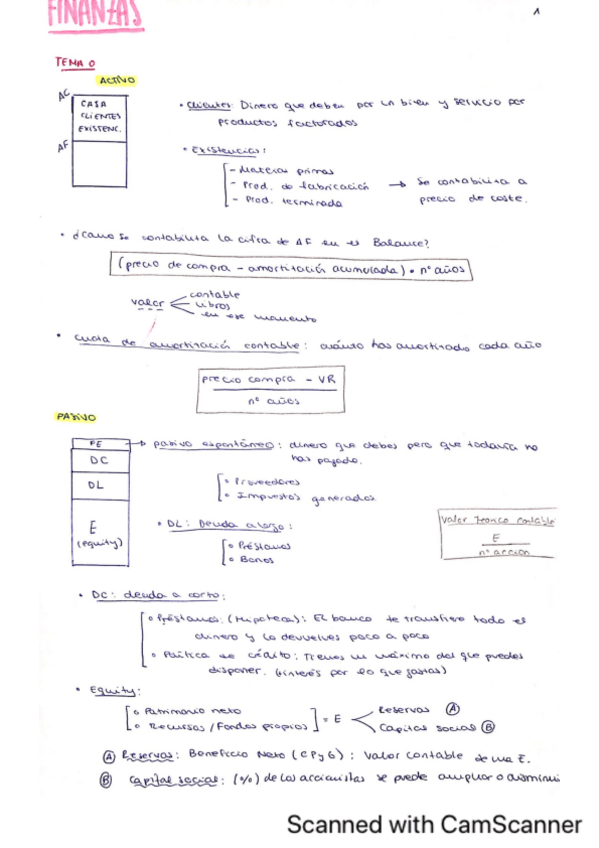 FINANZAS
1
TEMA 0
ACTIVO
AC
CAJA
CLIENTES
EXISTENC.
AF
• Clientes: Dinero que deben por un bien y servicio por
productos facturados
• Existencias:
- Materias primas
- Prod. de fabricación → Se contabiliza a
- Prod. terminada precio de coste.
• ¿Cómo se contabiliza la cifra de AF en el Balance?
(precio de compra - amortización acumulada) • nº años
valor
contable
libros
en ese momento
• Cuota de amortización contable: cuánto has amortizado cada año
precio compra - VR
nº años
PASIVO
PE → pasivo espontáneo: dinero que debes pero que todavía no
has pagado.
DC
DL
E
(equity)
• Proveedores
• Impuestos generados
• DL: Deuda a largo:
• Préstamos
• Bonos
Valor teórico contable
E
nº acción
• DC: deuda a corto:
• Préstamos: (Hipoteca): El banco te transfiere todo el
dinero y lo devuelves poco a poco
• Política de crédito: Tienes un máximo del que puedes
disponer. (interés por lo que gastas)
• Equity:
• Patrimonio neto
• Recursos / Fondos propios
= E
Reservas Ⓐ
Capital social Ⓑ
Ⓐ Reservas: Beneficio Neto (CPyG): Valor contable de una E.
Ⓑ Capital social: (%) de los accionistas se puede ampliar o disminui
Scanned with CamScanner